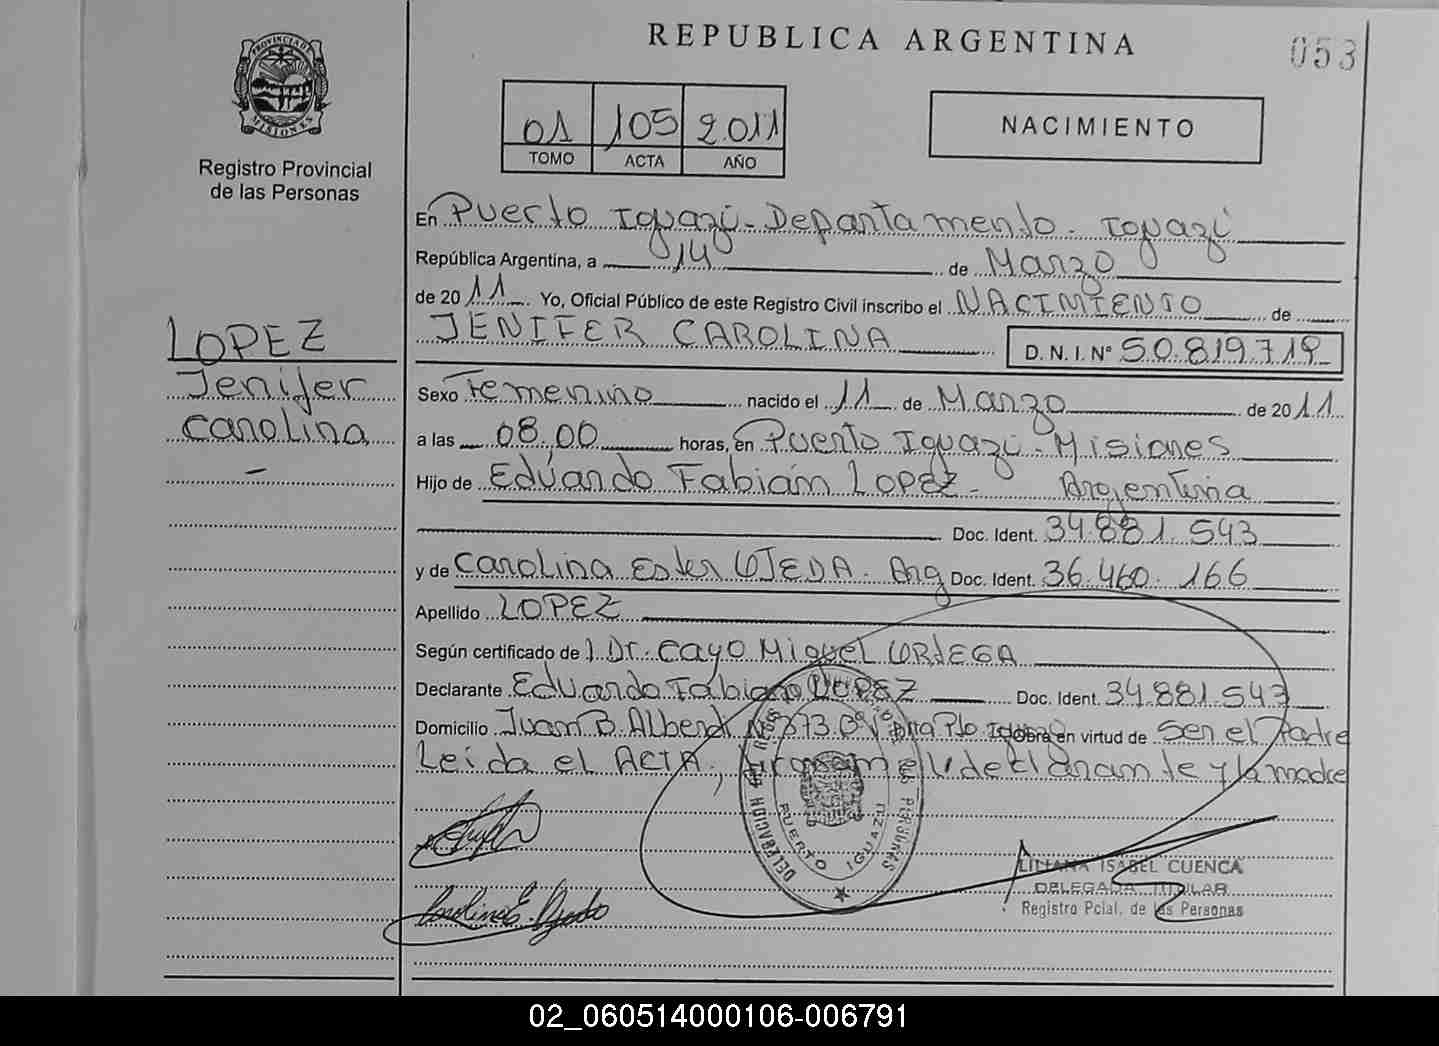 REPUBLICA ARGENTINA
053
PROVINCIA DE MISIONES
Registro Provincial
de las Personas
01 105 2011
TOMO ACTA AÑO
NACIMIENTO
En Puerto Iguazú - Departamento - Iguazú
República Argentina, a 14 de Marzo
de 2011. Yo, Oficial Público de este Registro Civil inscribo el NACIMIENTO de
JENIFER CAROLINA D. N. I. Nº 50.819.719
LOPEZ
Jenifer
Carolina
Sexo Femenino nacido el 11 de Marzo de 2011
a las 08.00 horas, en Puerto Iguazú - Misiones
Hijo de Eduardo Fabián Lopez - Argentina
Doc. Ident. 34.881.543
y de Carolina Ester OJEDA - Arg Doc. Ident. 36.460.166
Apellido LOPEZ
Según certificado de Dr. Cayo Miguel ORTEGA
Declarante Eduardo Fabian LOPEZ Doc. Ident. 34.881.543
Domicilio Juan B. Alberdi Nº 373 Bº Pto Iguazú Obra en virtud de Ser el Padre
Leida el ACTA, firman el declarante y la madre
DELEGACION PERSONAS
PUERTO IGUAZU
LILIANA ISABEL CUENCA
DELEGADA TITULAR
Registro Pcial. de las Personas
Carolina E. Ojeda
02_060514000106-006791